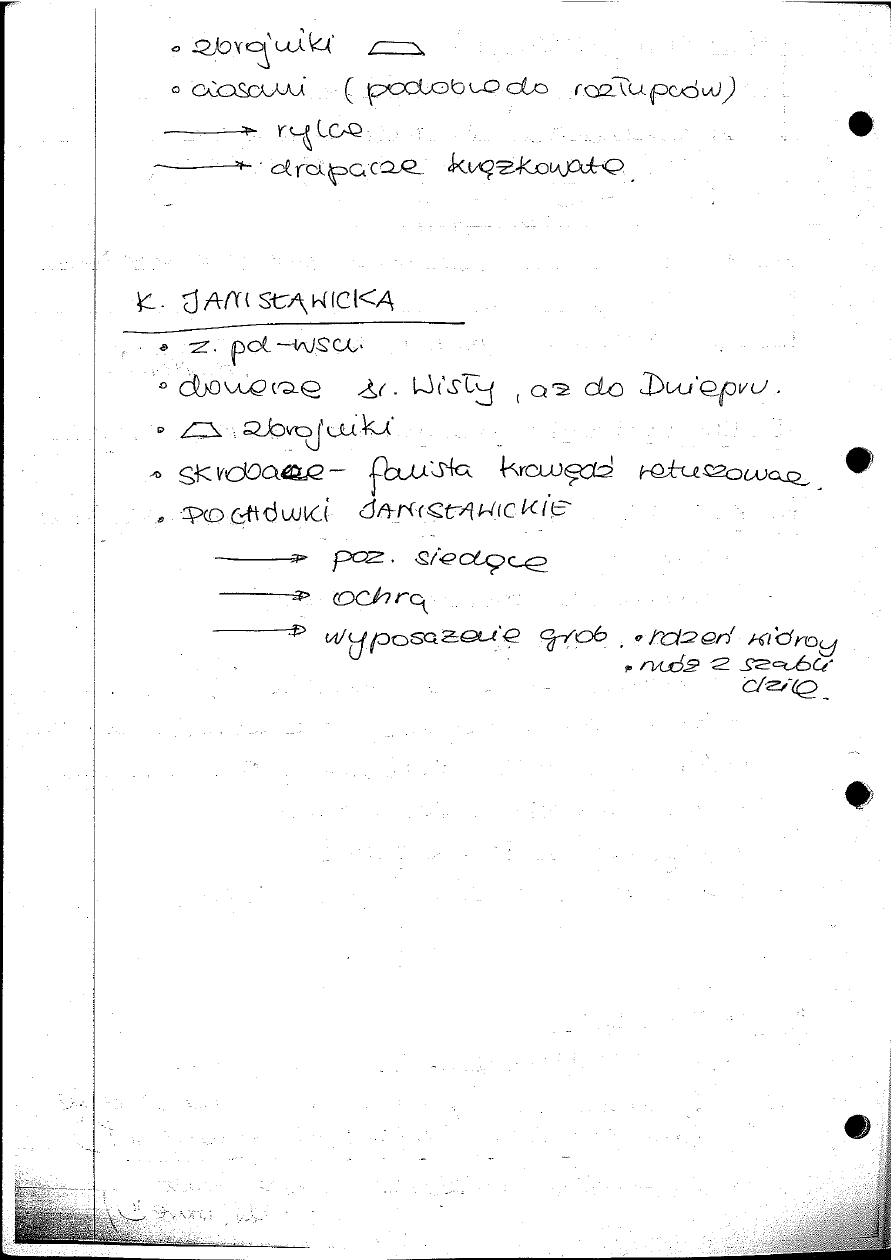 • zbrojniki
• ciosaki (podobne do rozłupców)
→ rylce
→ drapacze krążkowate.
K. JANISŁAWICKA
• z. pd-wsch.
• dorzecze śr. Wisły, aż do Dniepru.
• zbrojniki
• skrobacze - falista krawędź retuszowae.
• POCHÓWKI JANISŁAWICKIE
→ poz. siedzące
→ ochra
→ wyposażenie grob. • rdzeń
• nóż z szabli
dzik.